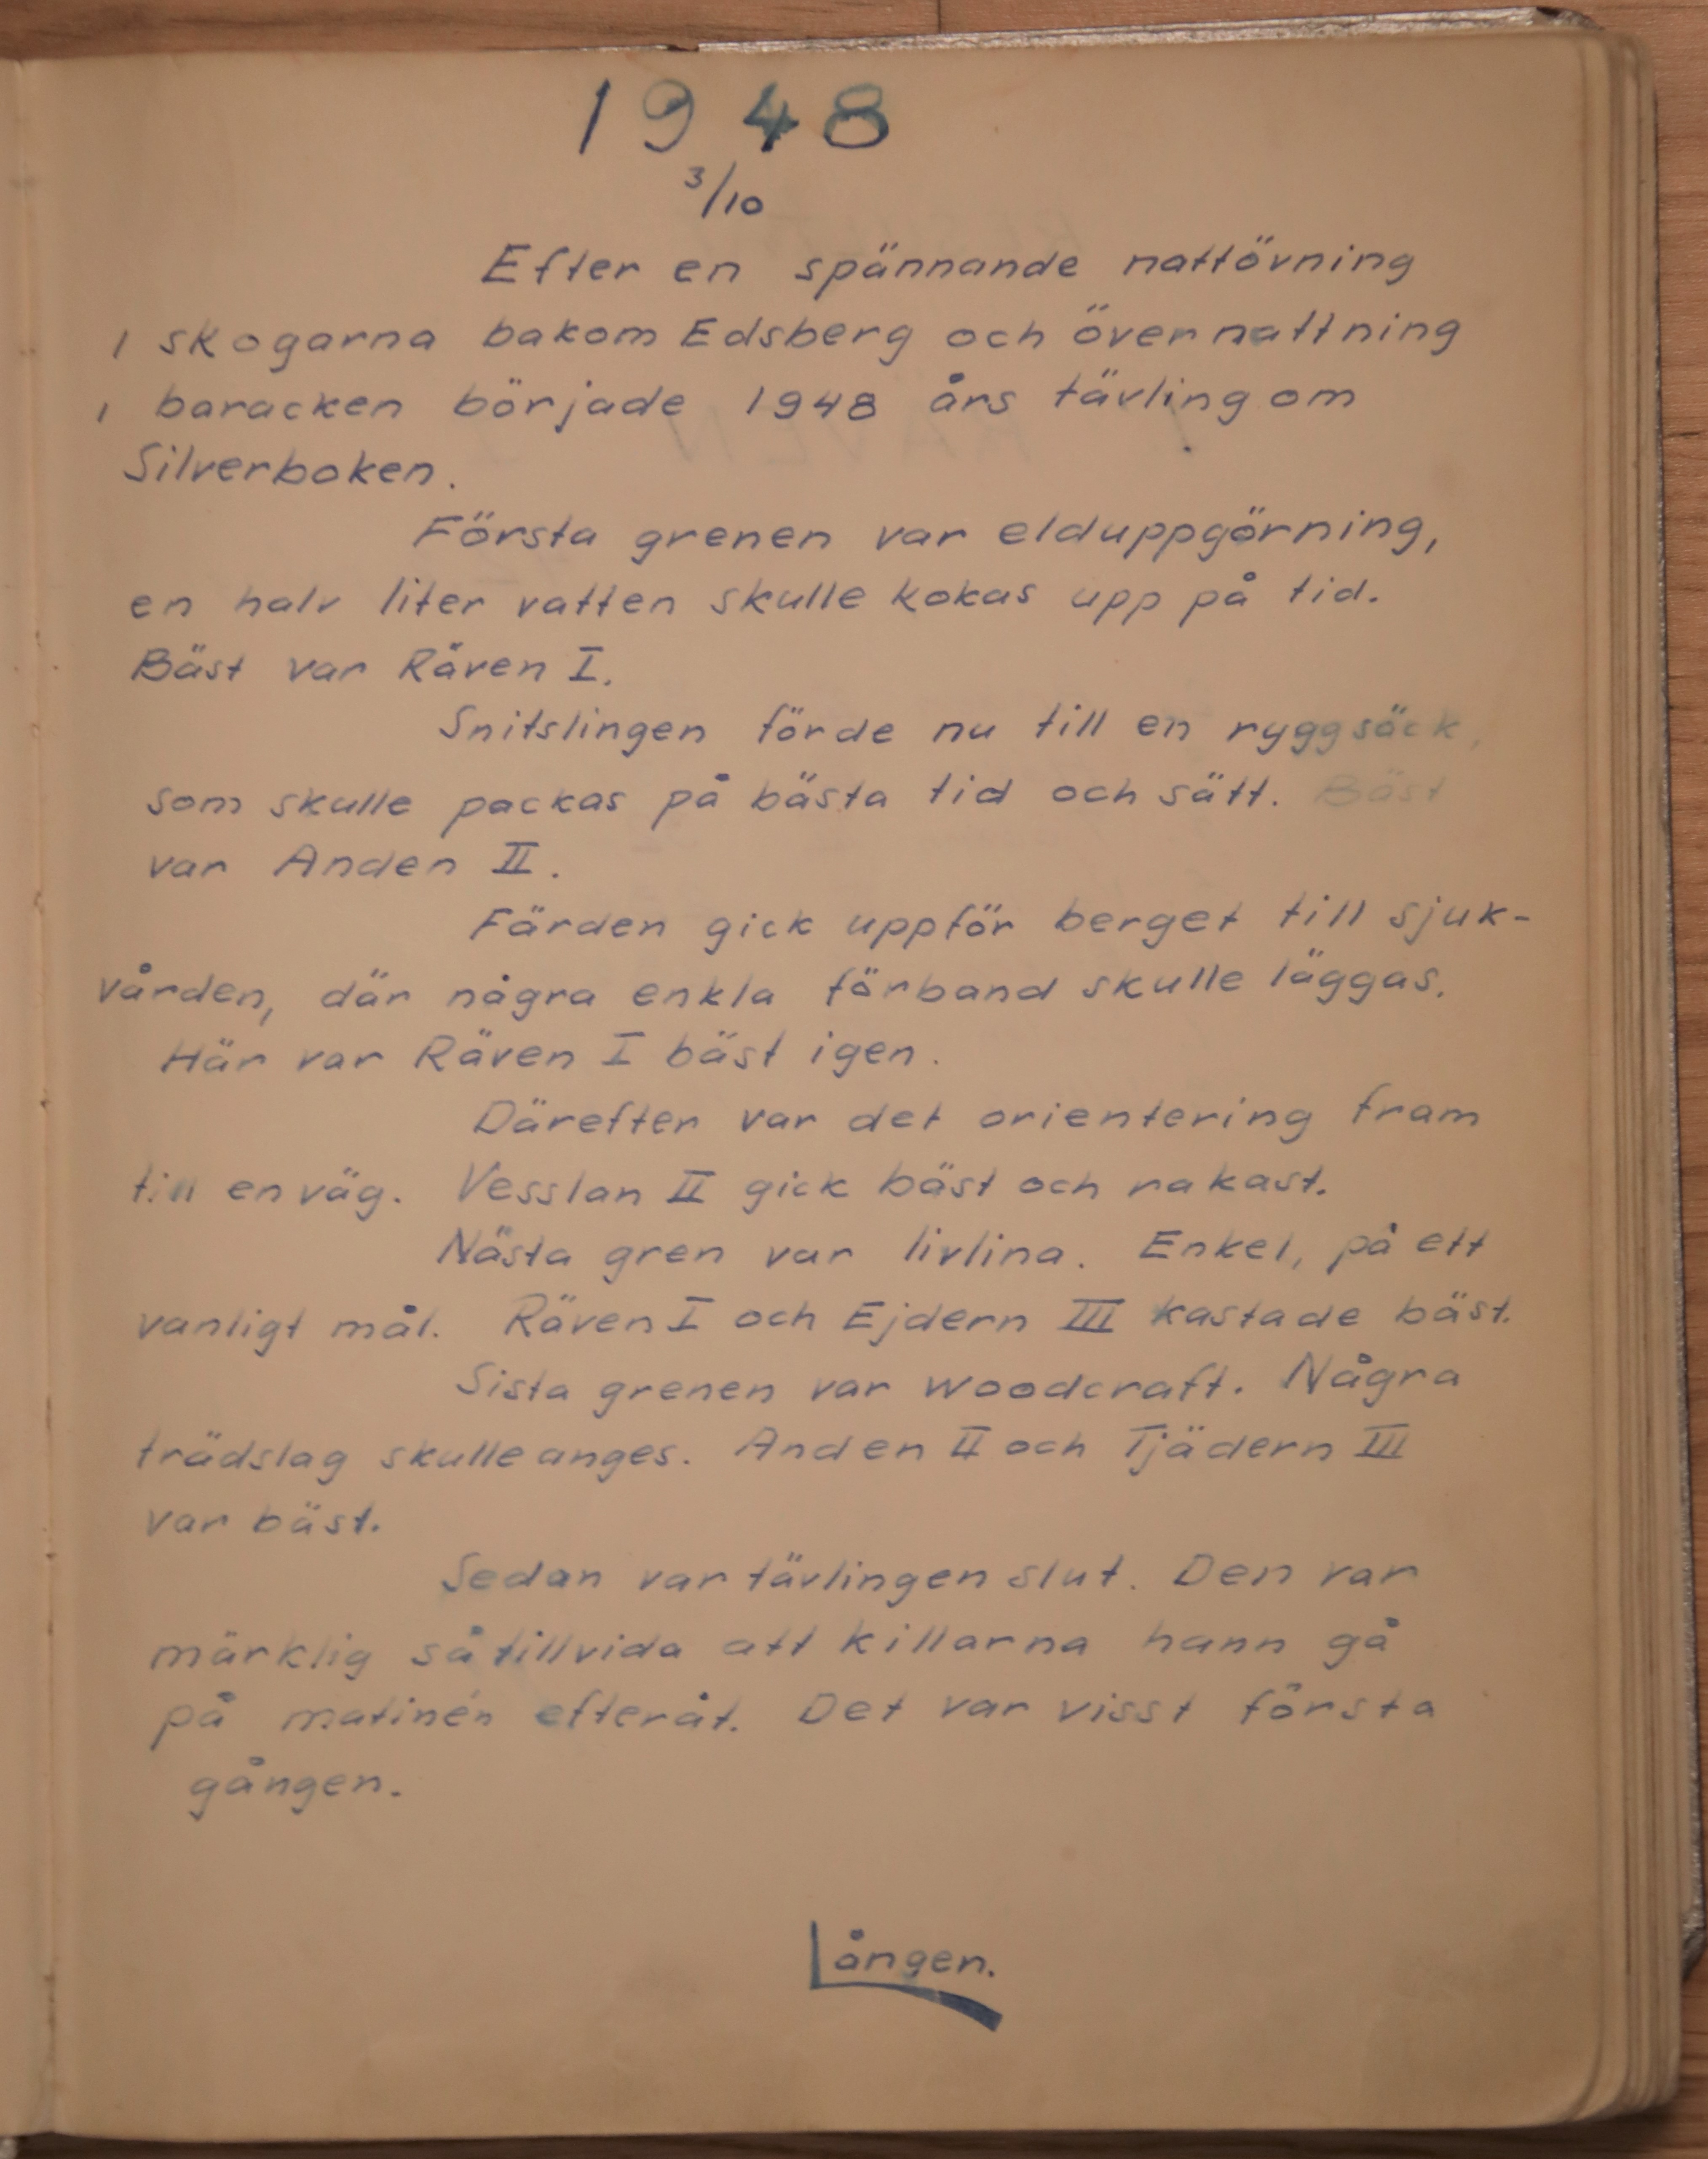 1948
3/10
Efter en spännande nattövning
i skogarna bakom Edsberg och övernattning
i baracken började 1948 års tävling om
Silverboken.
Första grenen var elduppgörning,
en halv liter vatten skulle kokas upp på tid.
Bäst var Räven I.
Snitslingen förde nu till en ryggsäck,
som skulle packas på bästa tid och sätt. Bäst
var Anden II.
Färden gick uppför berget till sjuk-
vården, där några enkla förband skulle läggas.
Här var Räven I bäst igen.
Därefter var det orientering fram
till en väg. Vesslan II gick bäst och rakast.
Nästa gren var livlina. Enkel, på ett
vanligt mål. Räven I och Ejdern III kastade bäst.
Sista grenen var woodcraft. Några
trädslag skulle anges. Anden II och Tjädern III
var bäst.
Sedan var tävlingen slut. Den var
märklig så tillvida att killarna hann gå
på matinén efteråt. Det var visst första
gången.
Lången.